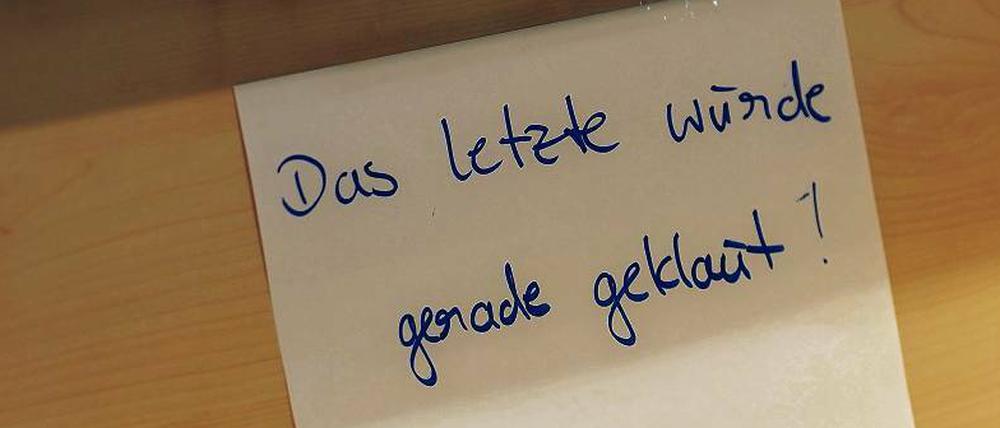 Das letzte wurde
gerade geklaut!